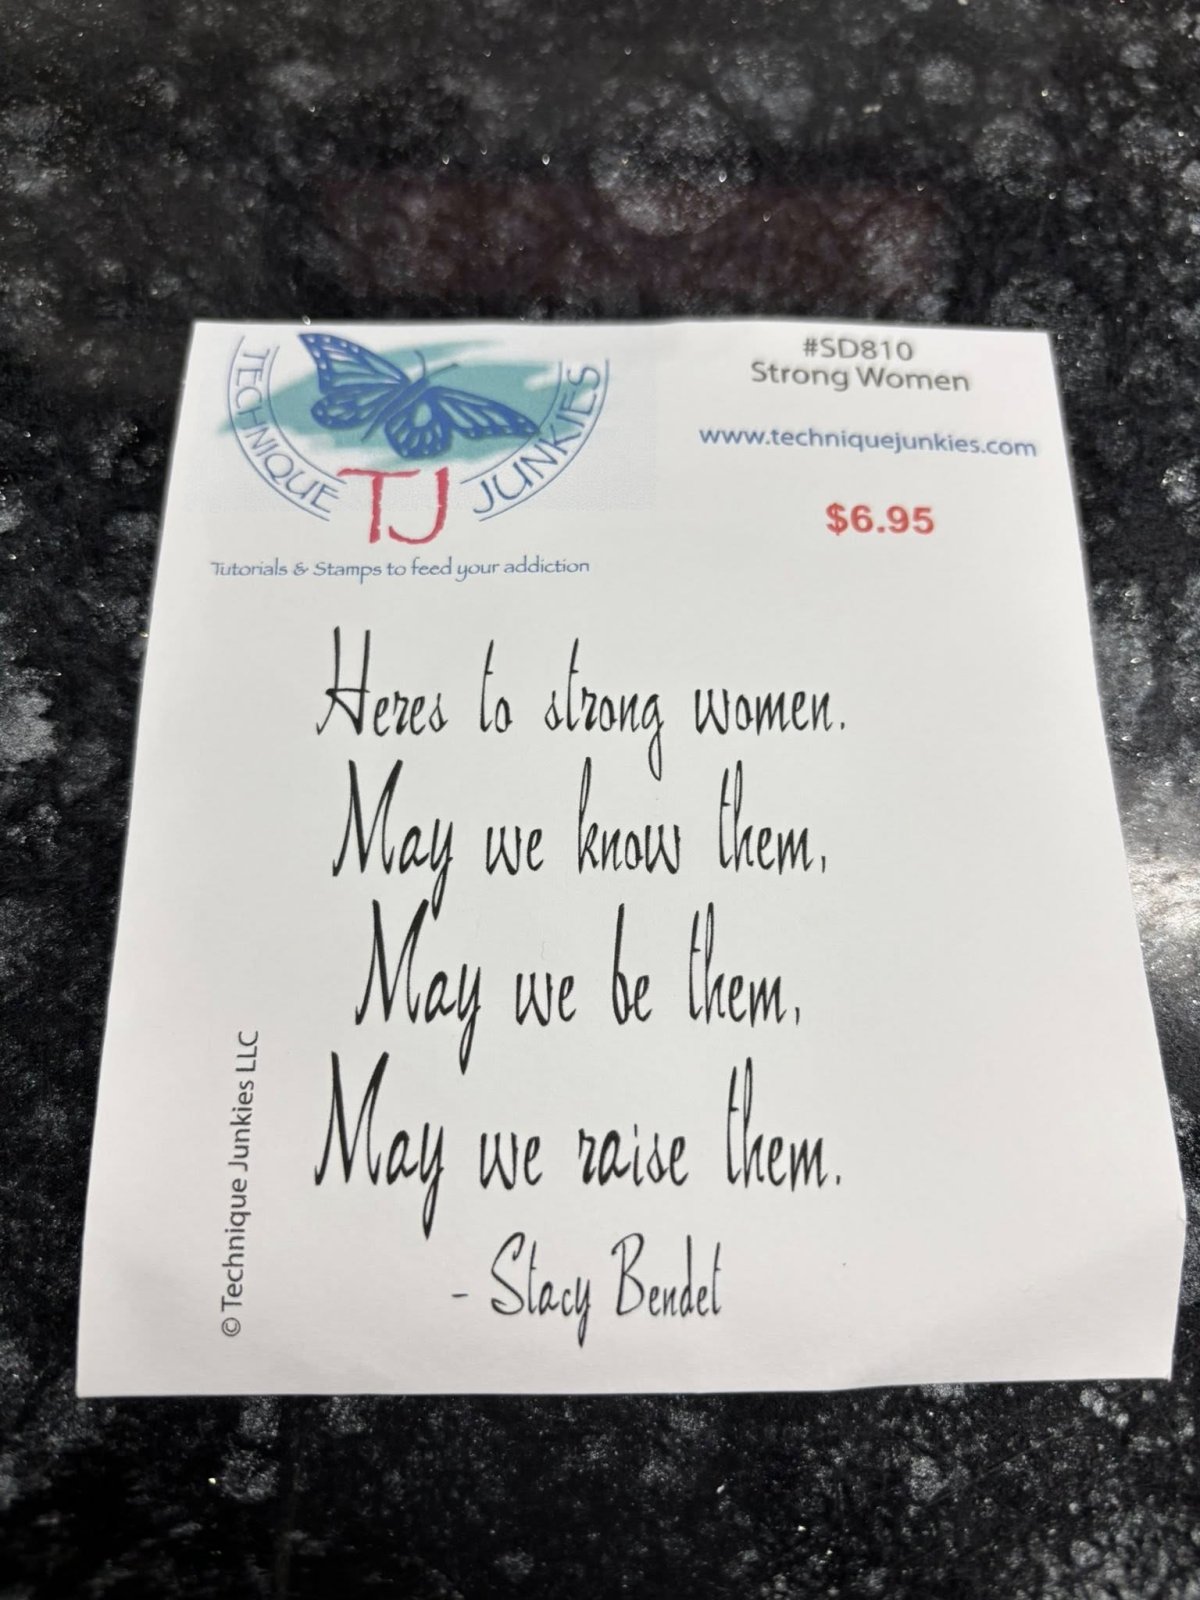 TECHNIQUE JUNKIES
TJ
Tutorials & Stamps to feed your addiction
#SD810
Strong Women
www.techniquejunkies.com
$6.95
Heres to strong women.
May we know them,
May we be them,
May we raise them.
- Stacy Bendet
© Technique Junkies LLC